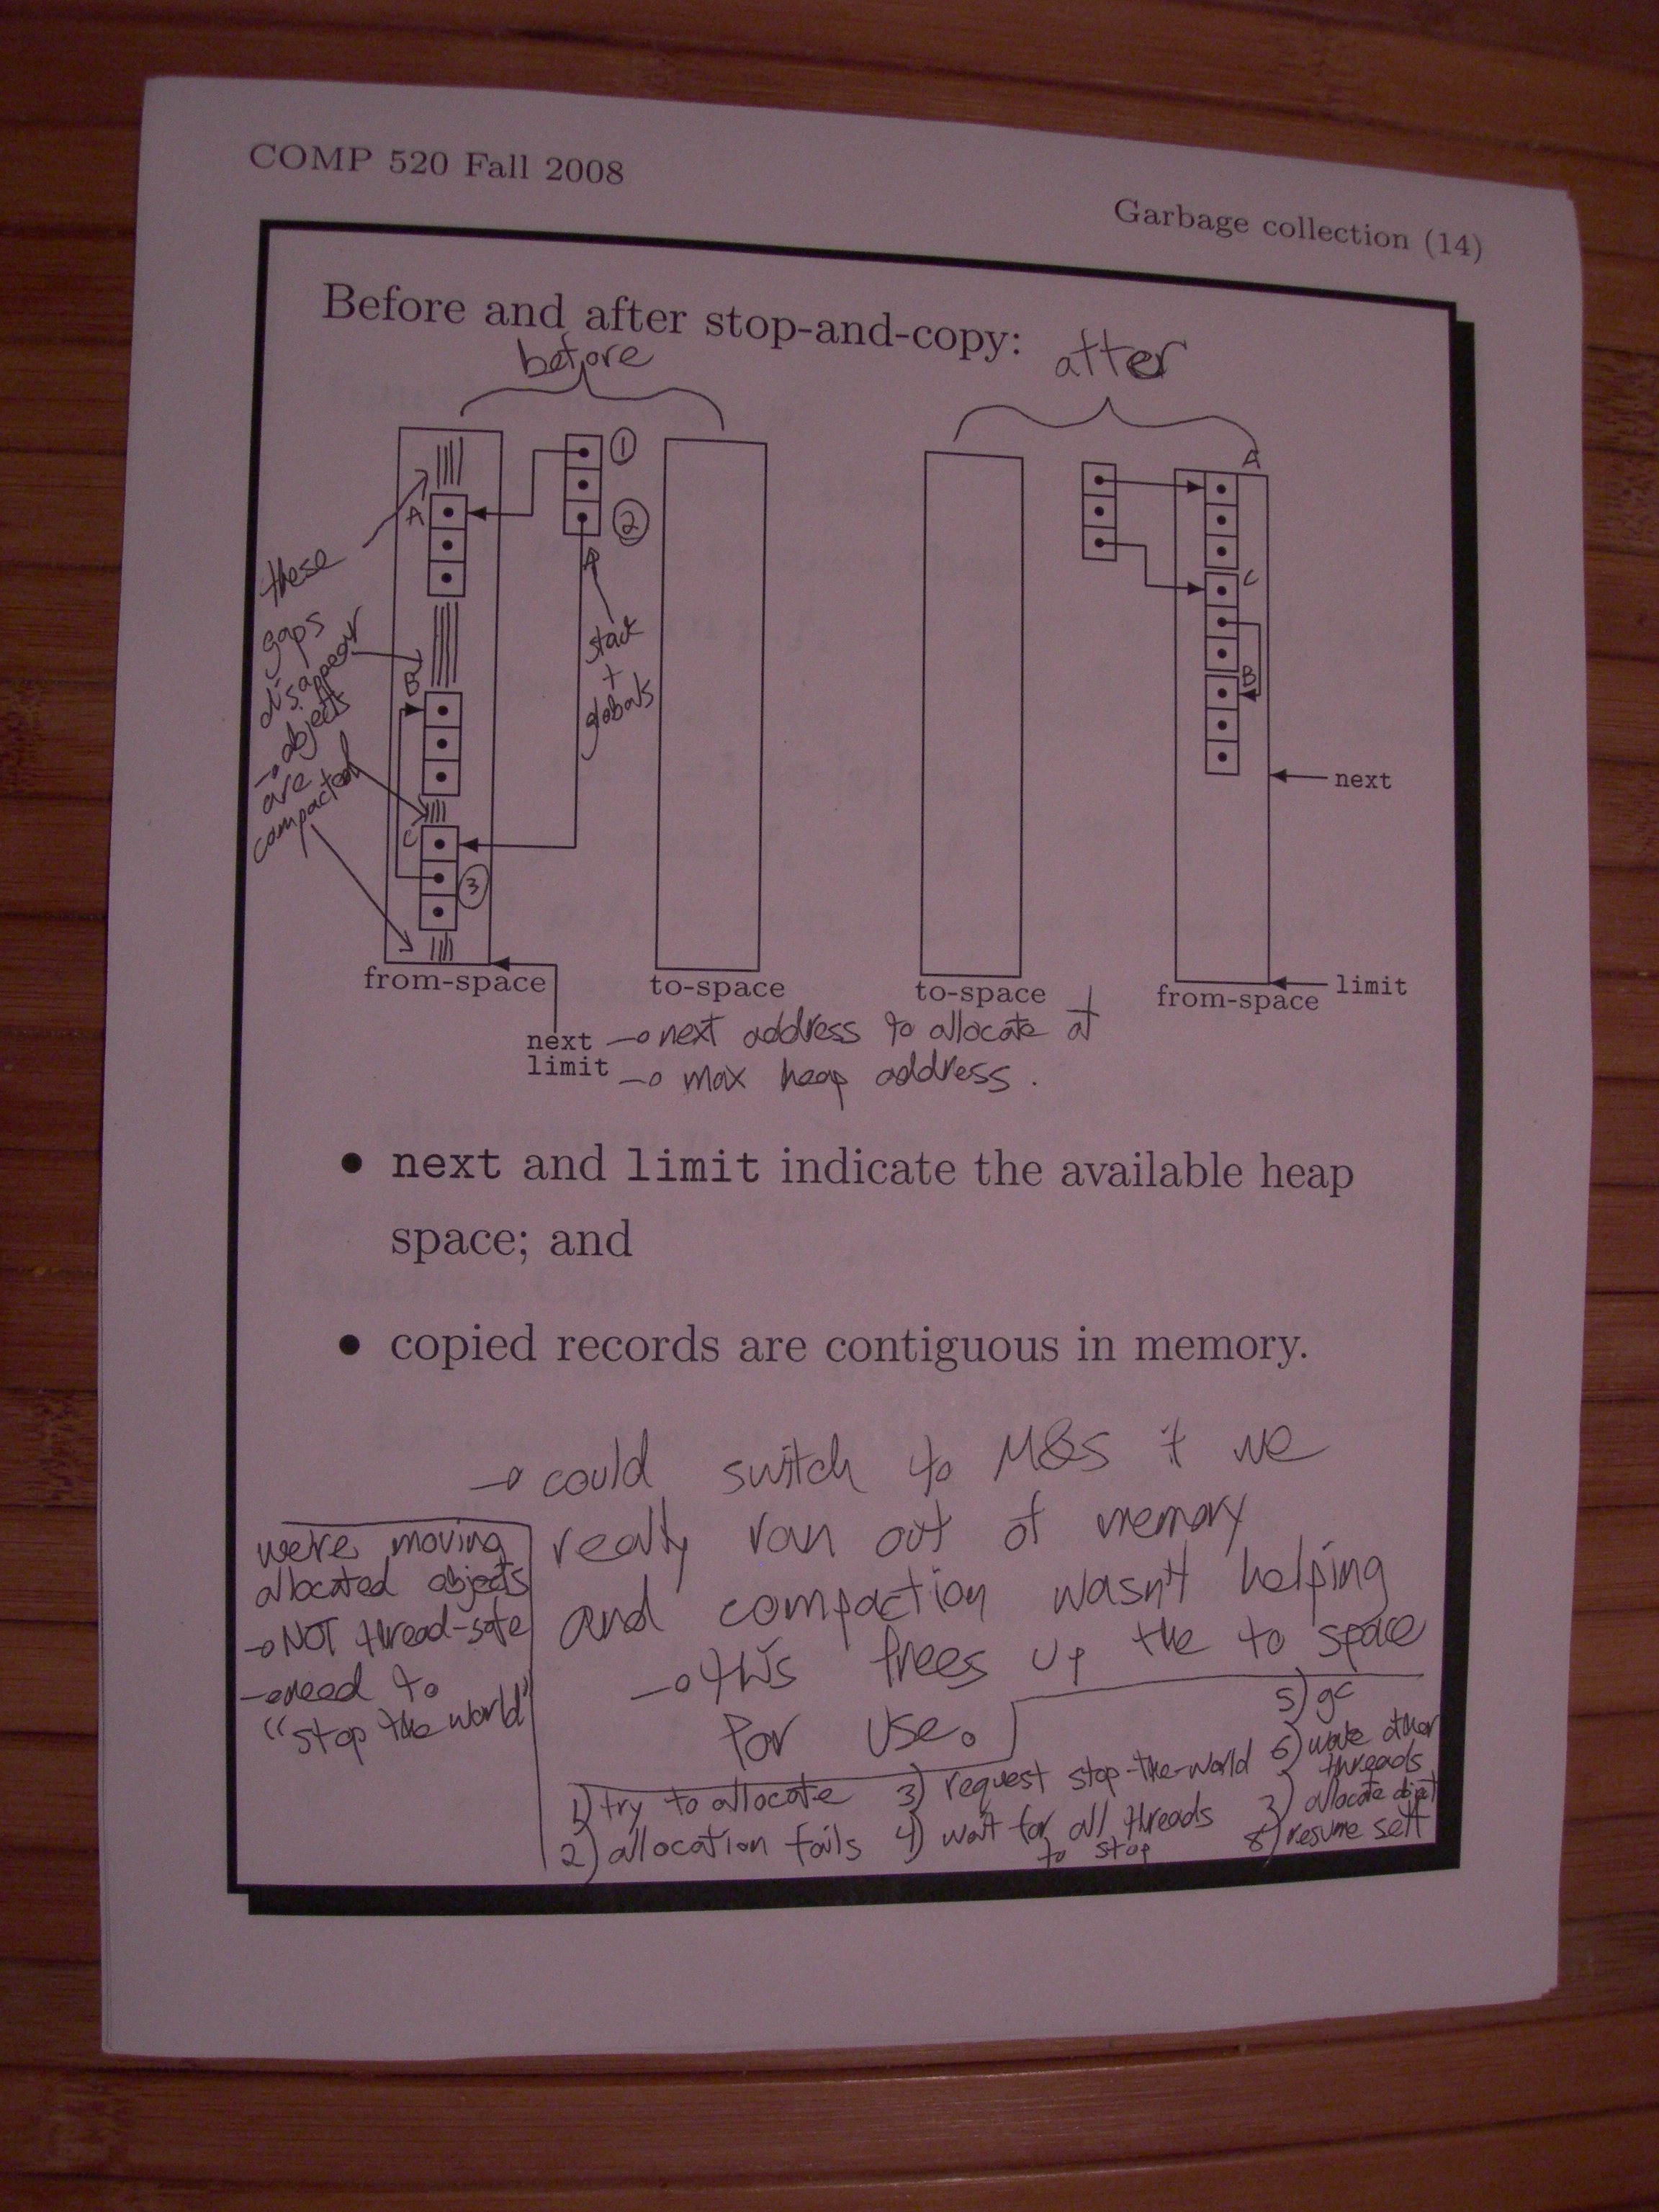 COMP 520 Fall 2008
Garbage collection (14)
Before and after stop-and-copy:
before
after
1
2
A
A
these
gaps
disappear
→ objects
are
compacted
stack
+
globals
C
B
B
C
3
next
from-space
to-space
to-space
from-space
limit
next → next address to allocate at
limit → max heap address.
• next and limit indicate the available heap
space; and
• copied records are contiguous in memory.
→ could switch to M&S if we
really ran out of memory
and compaction wasn't helping
→ this frees up the to space
for use.
we're moving
allocated objects
→ NOT thread-safe
→ need to
"stop the world"
1) try to allocate
2) allocation fails
3) request stop-the-world
4) wait for all threads
to stop
5) gc
6) wake other
threads
7) allocate object
8) resume self